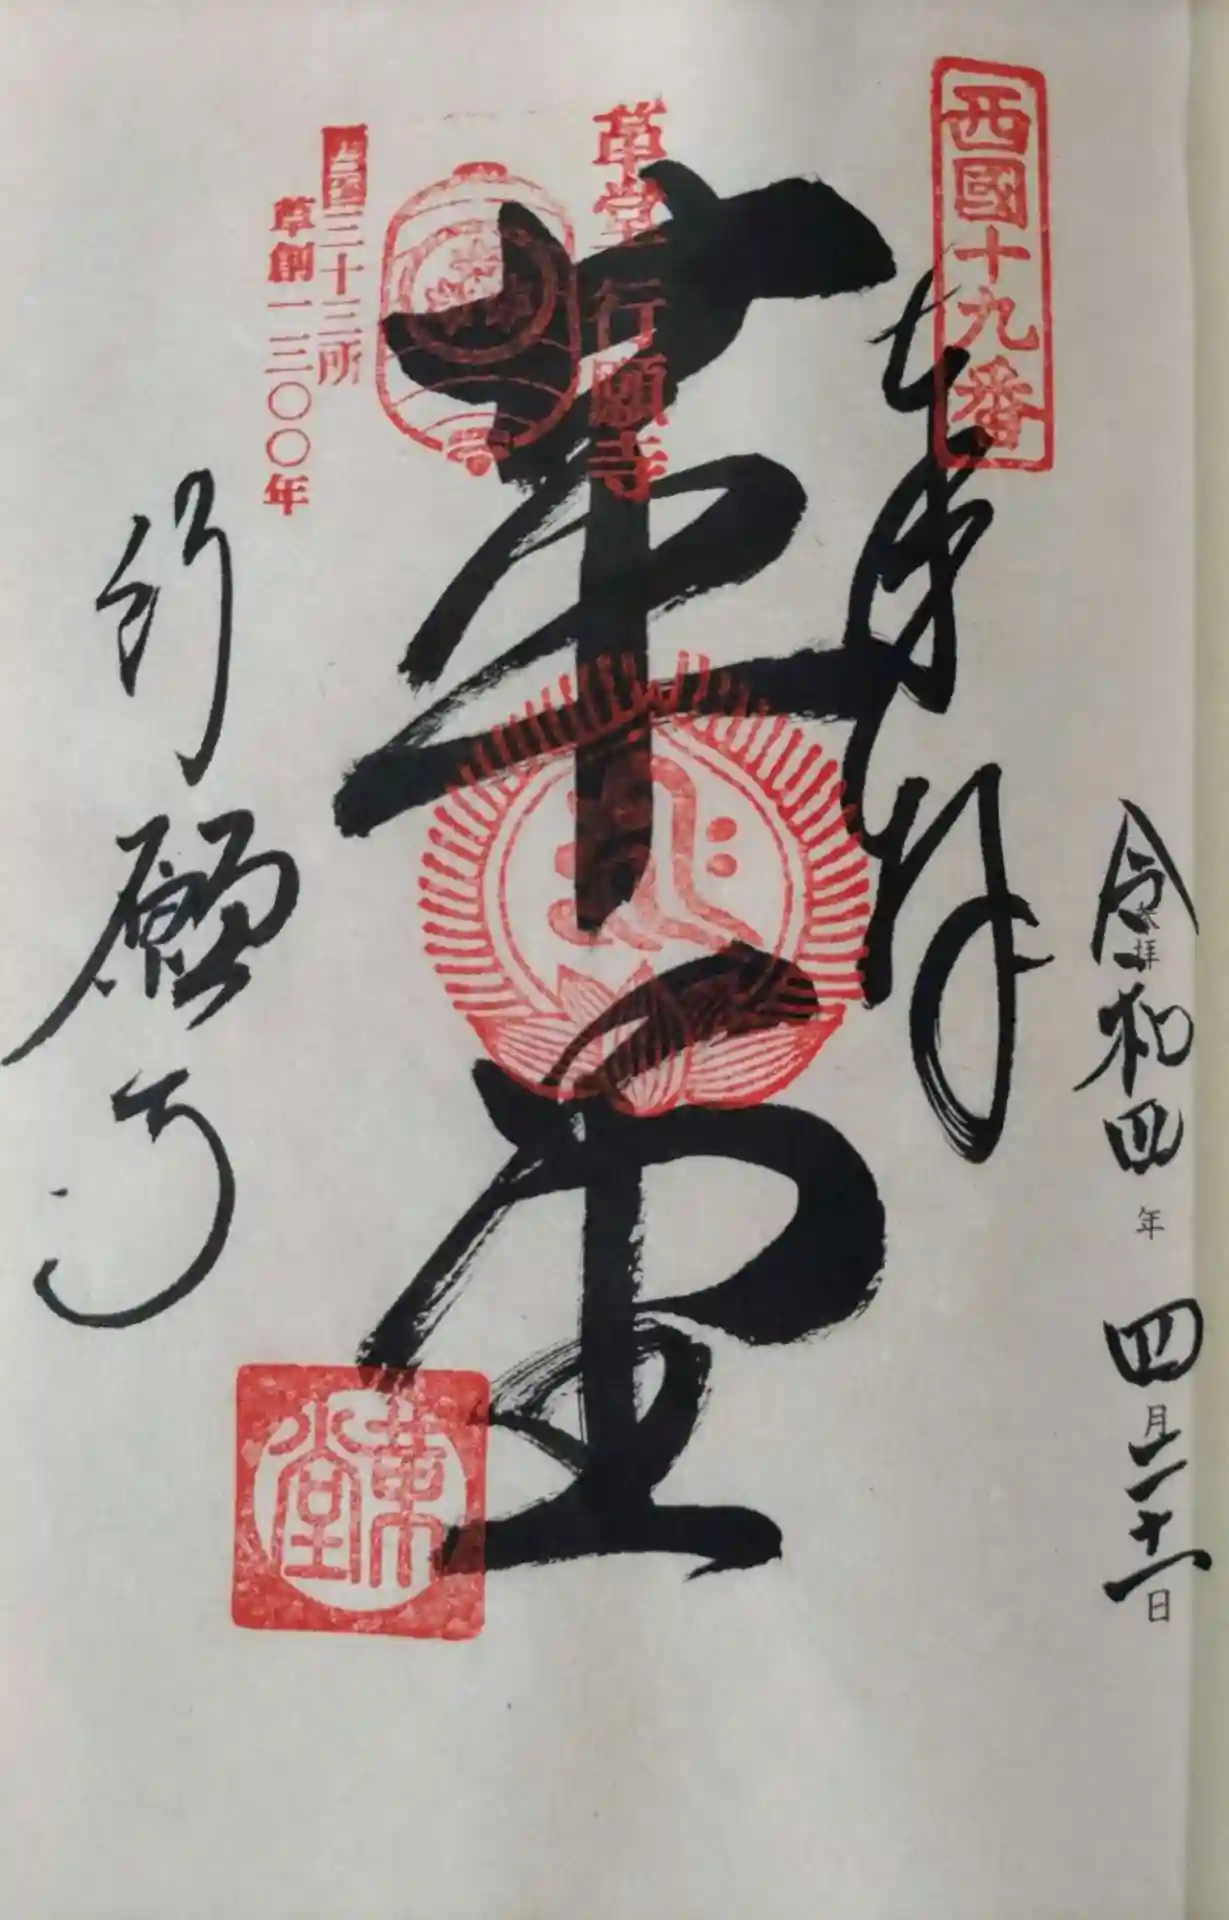 西國十九番
奉拝
令和四年四月二十一日
参拝
革堂
革堂 行願寺
三十三所
草創一三〇〇年
行願寺
革堂